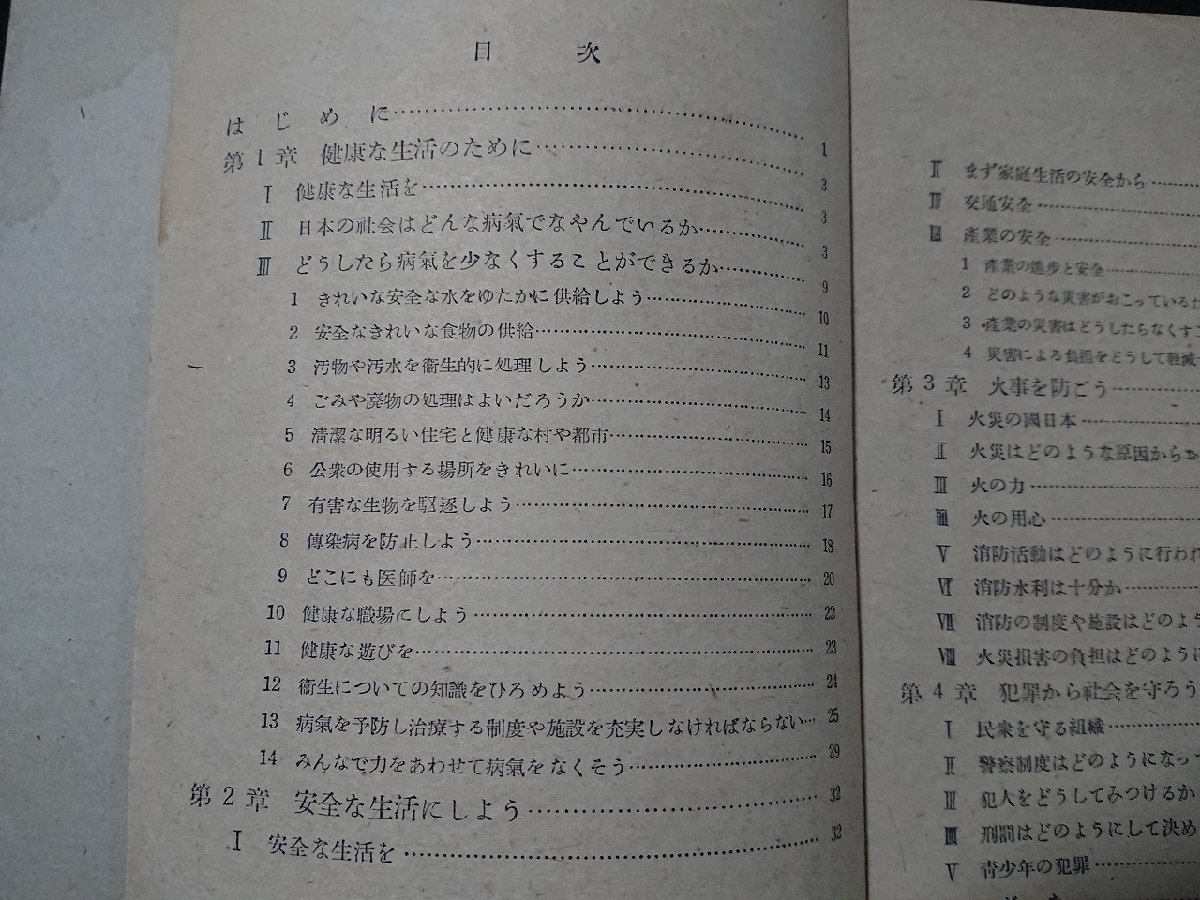 目次
はじめに……………1
第1章 健康な生活のために……………3
Ⅰ 健康な生活を……………3
Ⅱ 日本の社会はどんな病氣でなやんでいるか……………3
Ⅲ どうしたら病氣を少なくすることができるか……………9
1 きれいな安全な水をゆたかに供給しよう……………10
2 安全なきれいな食物の供給……………11
3 汚物や汚水を衞生的に処理しよう……………13
4 ごみや廃物の処理はよいだろうか……………14
5 清潔な明るい住宅と健康な村や都市……………15
6 公衆の使用する場所をきれいに……………16
7 有害な生物を駆逐しよう……………17
8 傳染病を防止しよう……………18
9 どこにも医師を……………20
10 健康な職場にしよう……………22
11 健康な遊びを……………23
12 衞生についての知識をひろめよう……………24
13 病氣を予防し治療する制度や施設を充実しなければならない…25
14 みんなで力をあわせて病氣をなくそう……………29
第2章 安全な生活にしよう……………32
Ⅰ 安全な生活を……………32
Ⅱ まず家庭生活の安全から……
Ⅲ 交通安全……………
産業の安全……………
1 産業の進歩と安全……………
2 どのような災害がおこっている
3 産業の災害はどうしたらなくす
4 災害による負担をどうして軽減
第3章 火事を防ごう……………
Ⅰ 火災の國日本……………
Ⅱ 火災はどのような原因からお
Ⅲ 火の力……………
火の用心……………
Ⅴ 消防活動はどのように行われ
Ⅵ 消防水利は十分か……………
Ⅶ 消防の制度や施設はどのよう
Ⅷ 火災損害の負担はどのように
第4章 犯罪から社会を守ろう
Ⅰ 民衆を守る組織……………
Ⅱ 警察制度はどのようになっ
Ⅲ 犯人をどうしてみつけるか
刑罰はどのようにして決め
Ⅴ 青少年の犯罪……………